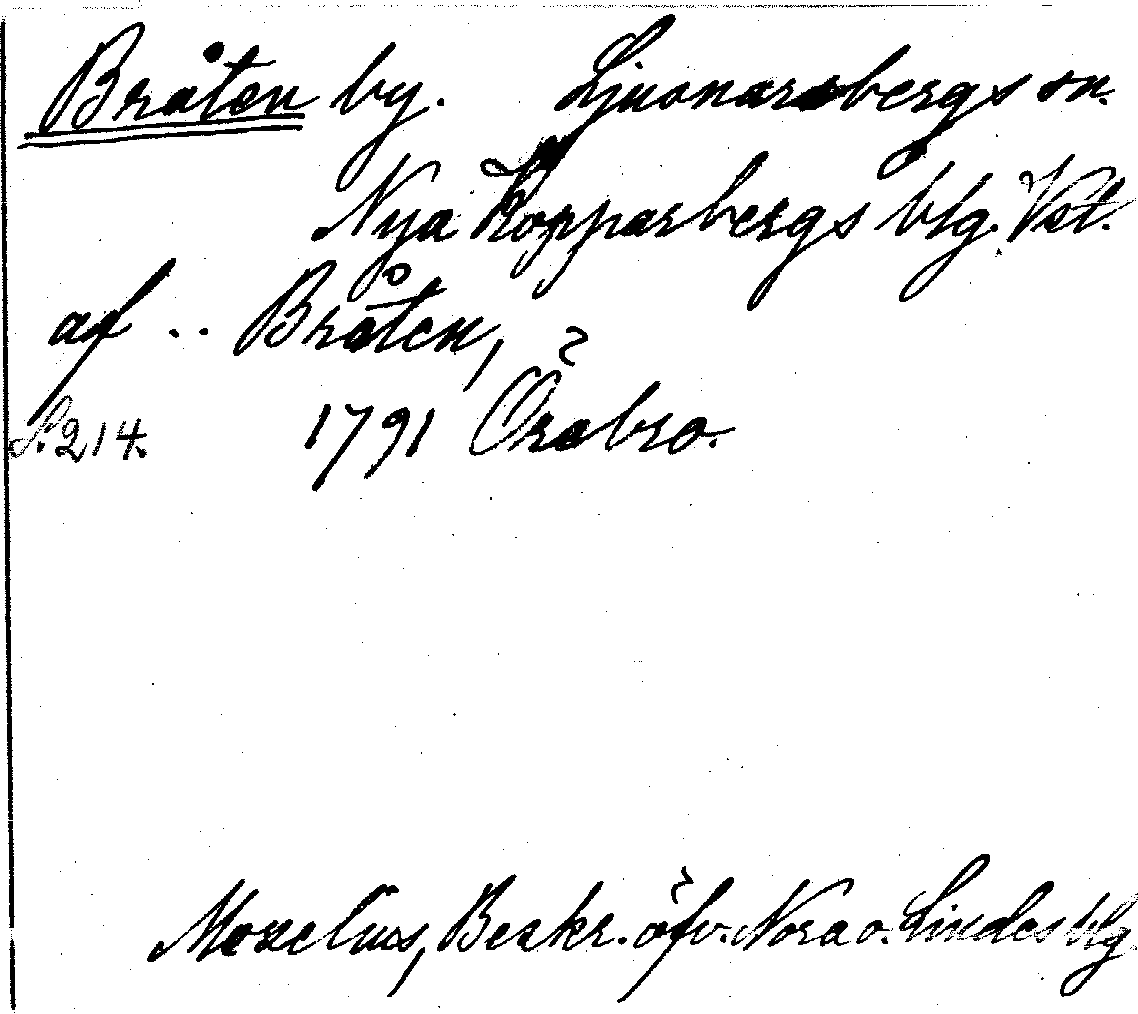 Bråten by. Ljusnarsbergs sn.
Nya Kopparbergs blg. Vstl.
af .. Bråten,
S. 214. 1791 Örebro.
Morelius, Beskr. öfv. Nora o. Lindes blg.